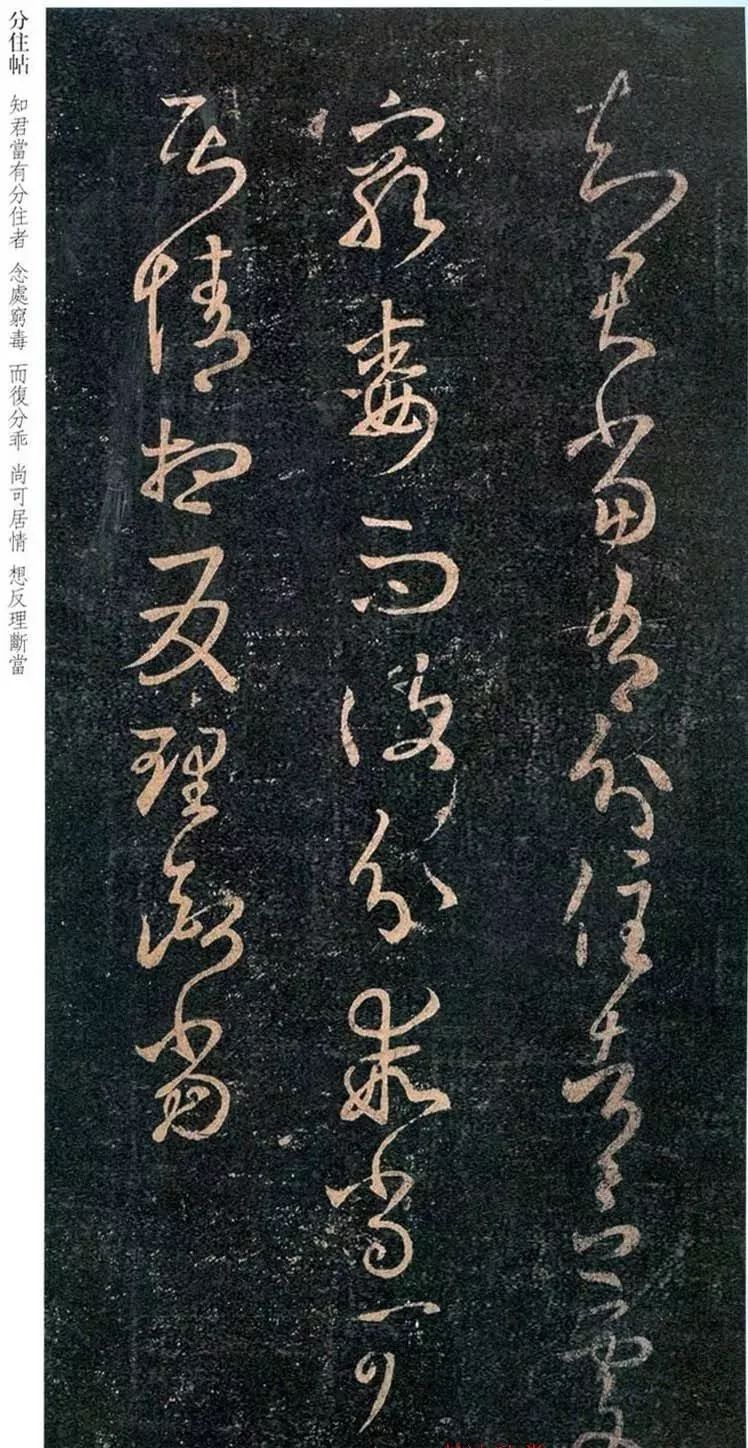 分住帖 知君當有分住者 念處窮毒 而復分乖 尚可居情 想反理斷當
知君當有分住者念處
窮毒而復分乖尚可
居情想反理斷當